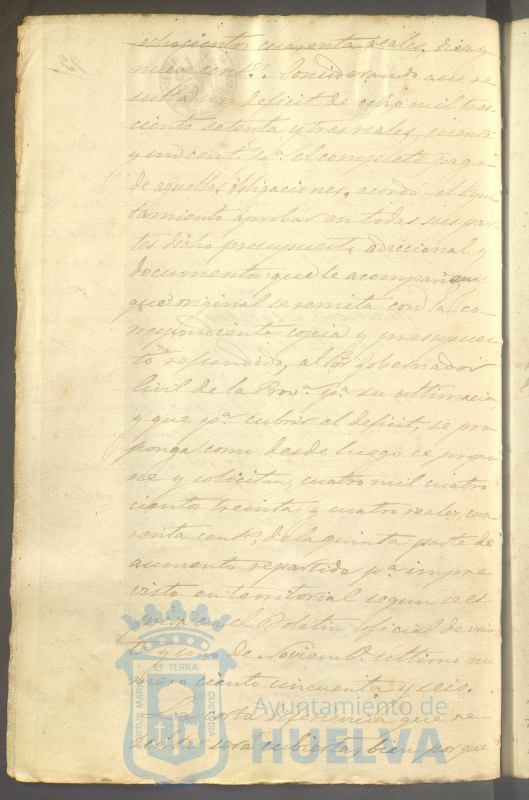 ochocientos cuarenta reales, diez y
nueve cent.s Considerando que re
sulta un deficit de ocho mil tres
ciento setenta y tres reales, sesenta
y un cent.s p.a el completo pago
de aquellas obligaciones, acordó el Ayun
tamiento aprobar en todas sus par
tes dicho presupuesto adiccional y
documentos que le acompañan y
que original se remita con la co
rrespondiente copia y presupues
to refundido, al Sor Gobernador
Civil de la Prov.a p.a su ultimacion,
y que p.a cubrir el deficit, se pro
ponga como desde luego se propo
ne y solicitan, cuatro mil cuatro
cientos treinta y cuatro reales, cua
renta cent.s, de la quinta parte de
aumento repartido p.a impre
visto en territorial segun se es
presa en el Boletin oficial de vein
te y uno de Noviemb.e ultimo nu
mero ciento cincuenta y seis.
La corta diferencia que re
sulta será cubierta, bien porque
PORTUS MARIS ET TERRÆ CUSTODIA
Ayuntamiento de
HUELVA